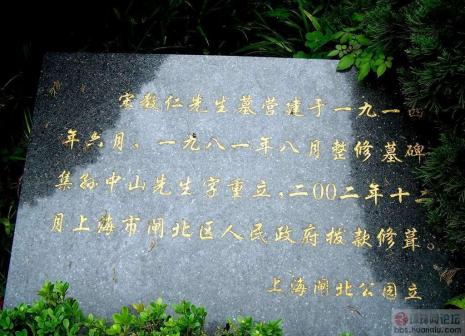 宋教仁先生墓营建于一九一四
年六月，一九八一年八月整修墓碑
集孙中山先生字重立，二〇〇二年十二
月上海市闸北区人民政府拨款修葺。
上海闸北公园立
环球网论坛
bbs.huanqiu.com